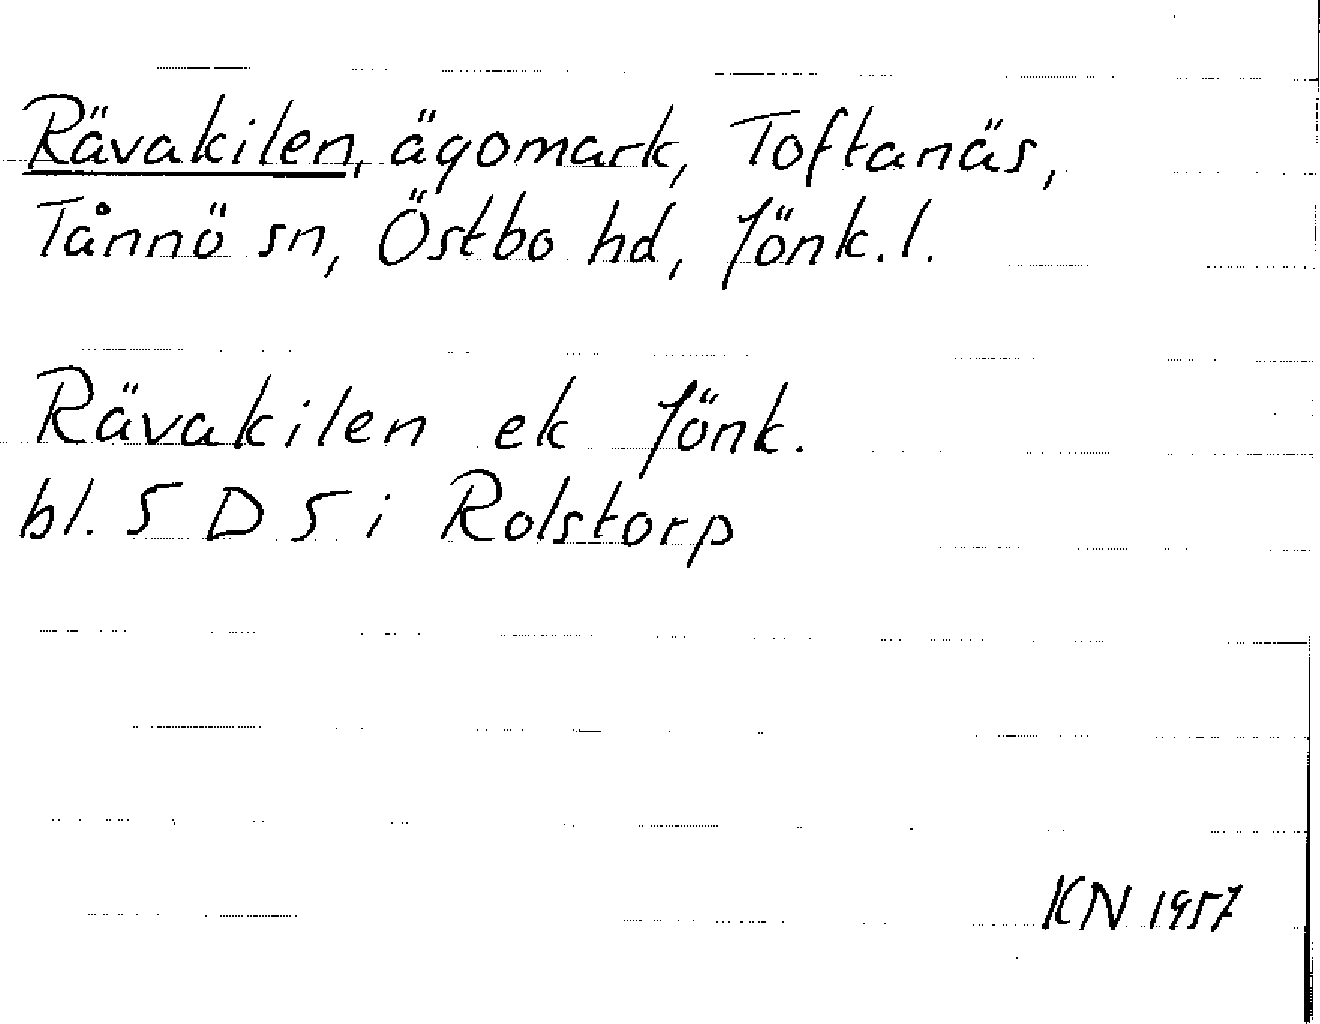 Rävakilen, ägomark, Toftanäs,
Tånnö sn, Östbo hd, Jönk.l.
Rävakilen ek Jönk.
bl. 5 D 5 i Rolstorp
KN 1957